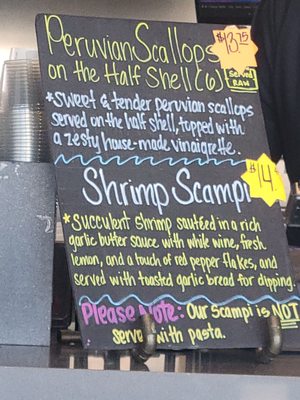 Peruvian Scallops $13.75
on the Half Shell (6) Served
RAW
*Sweet & tender peruvian scallops
served on the half shell, topped with
a zesty house-made vinaigrette.
Shrimp Scampi $14
*Succulent shrimp sautéed in a rich
garlic butter sauce with white wine, fresh
lemon, and a touch of red pepper flakes, and
served with toasted garlic bread for dipping.
Please Note: Our Scampi is NOT
served with pasta.